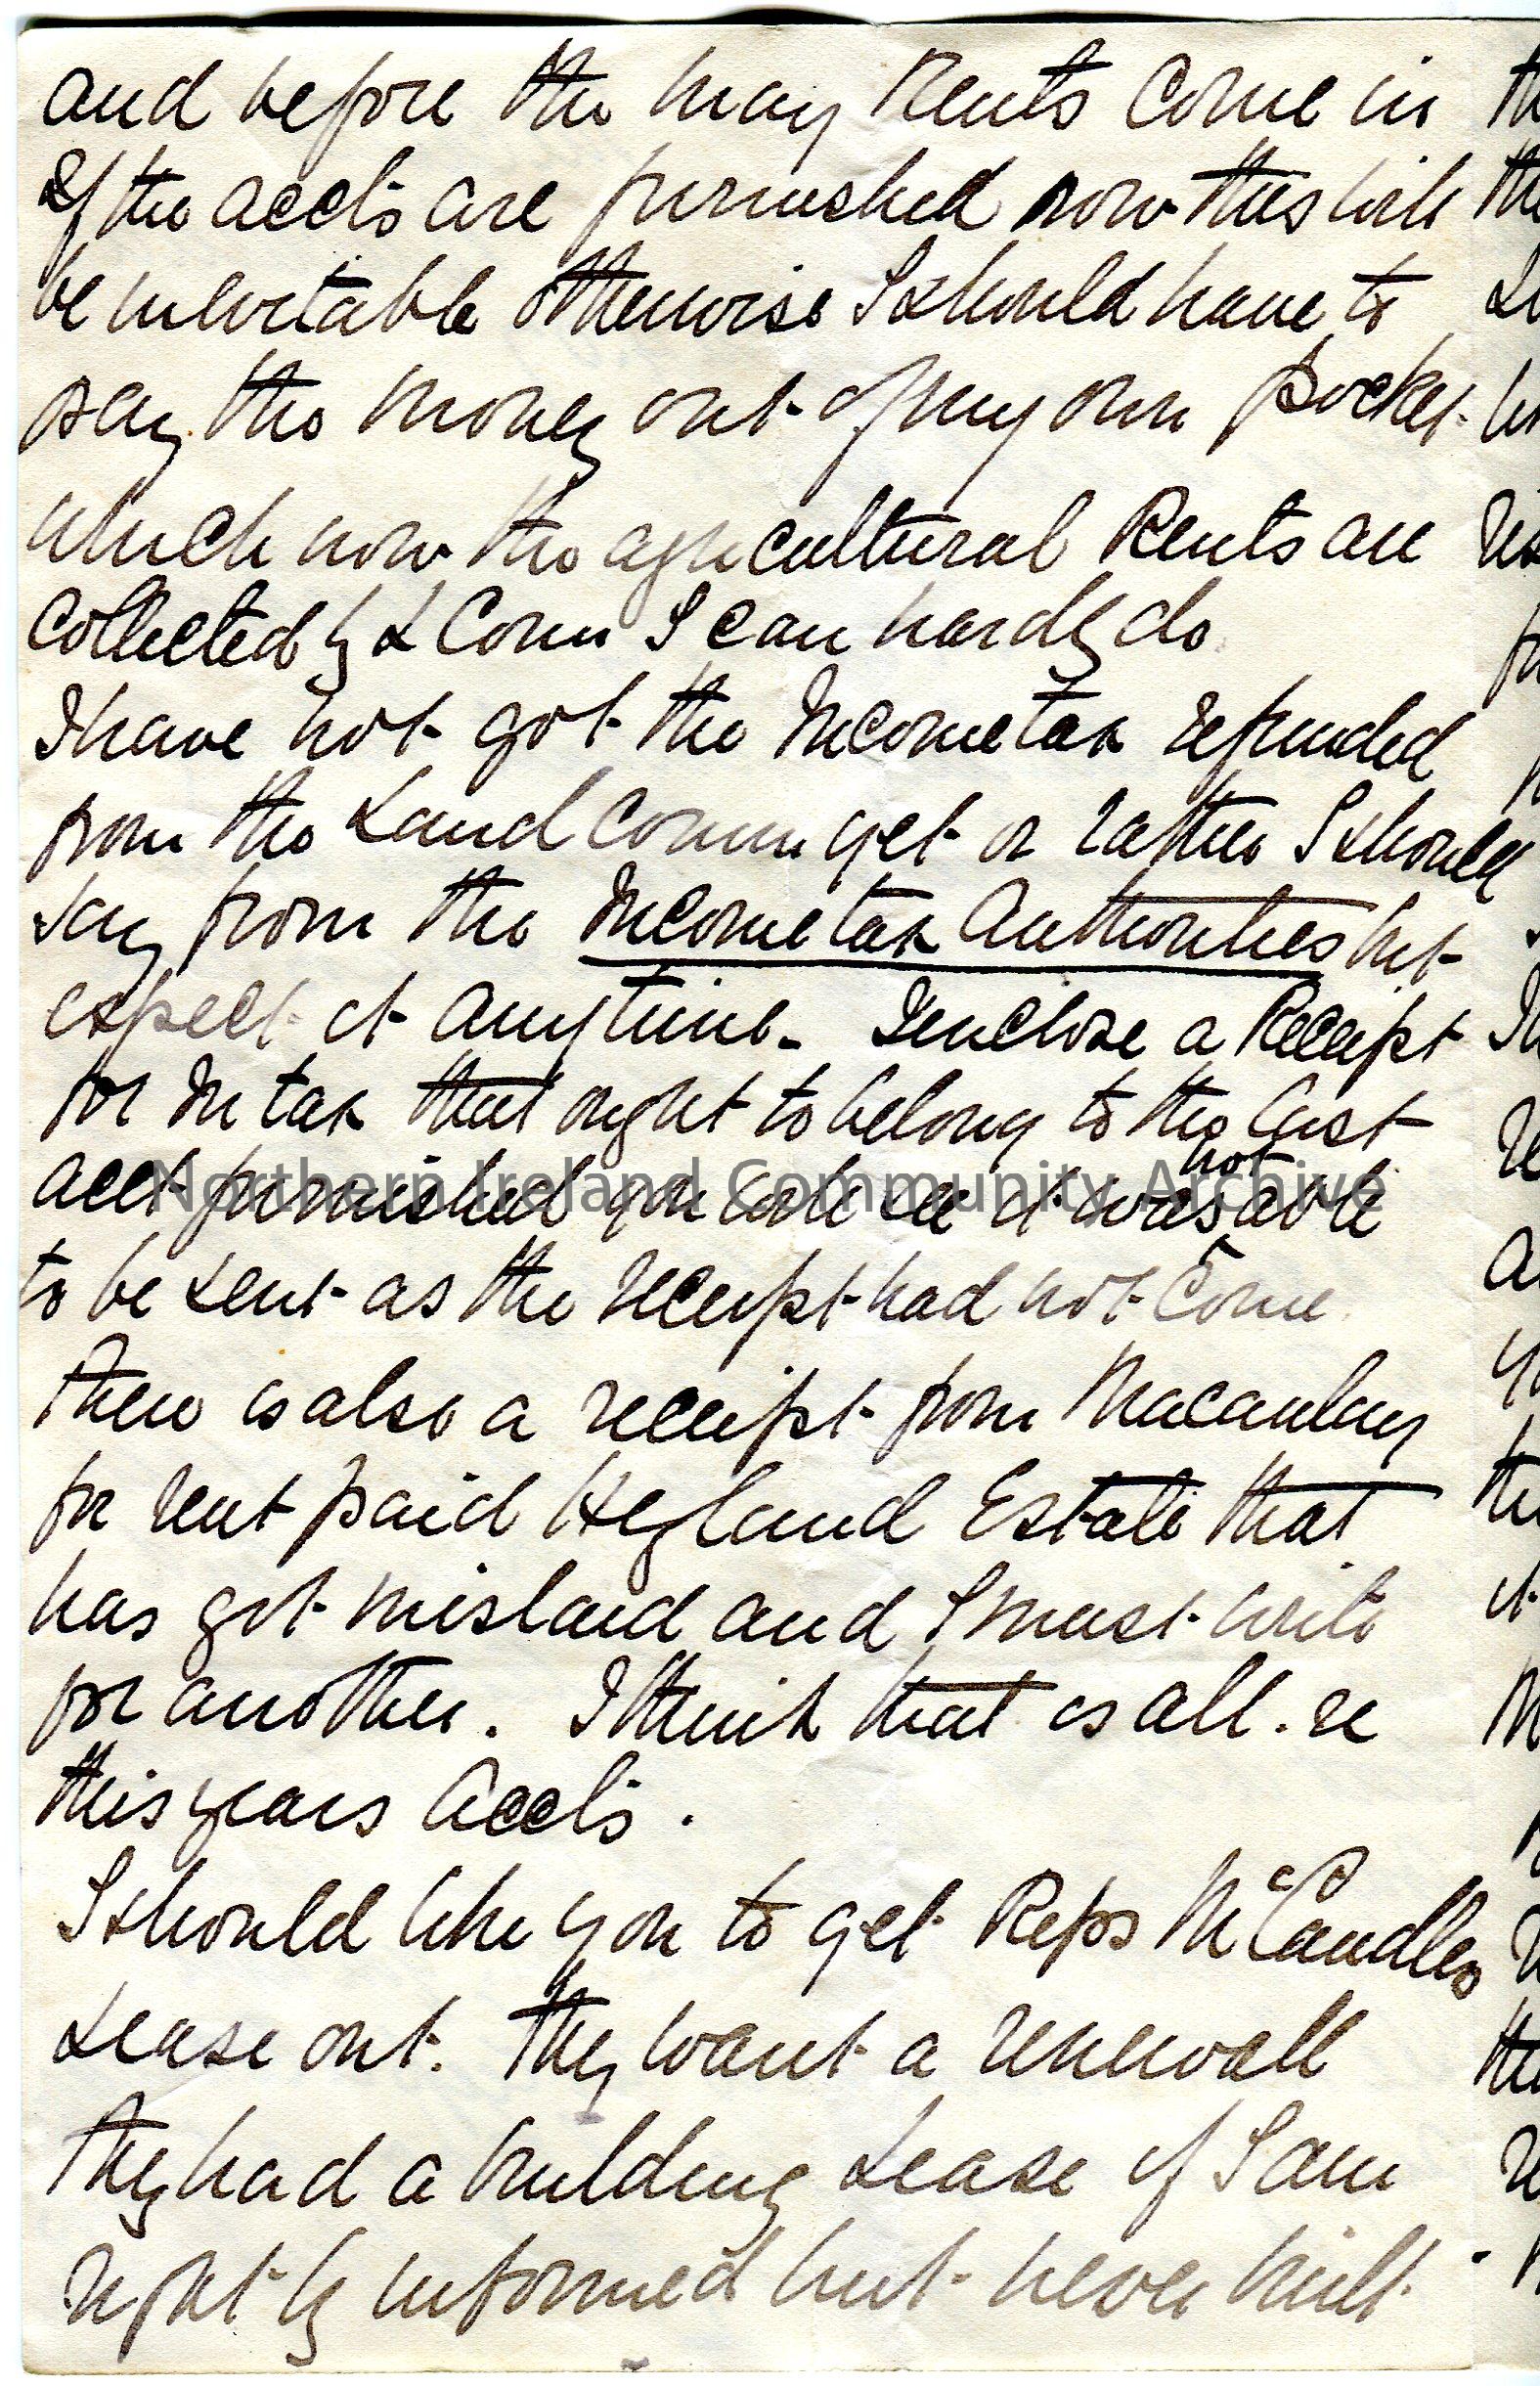 and before the May Rents come in
If the acct's are furnished now this will
be inevitable otherwise I should have to
pay the money out of my own pocket
which now the agricultural Rents are
collected by L Comn I can hardly do
I have not got the Income tax refunded
from the Land Comn yet or rather I should
say from the Income tax Authorities but
expect it anytime. I enclose a Receipt
for In tax that ought to belong to the last
acct furnished you will see it was not able
to be sent as the receipt had not come
There is also a receipt from Macaulay
for rent paid Heyland Estate that
has got mislaid and I must write
for another. I think that is all. re
this years Acct's.
I should like you to get Reps McCandless
Lease out. They want a renewall
They had a building Lease if I am
rightly informed but never built
Northern Ireland Community Archive